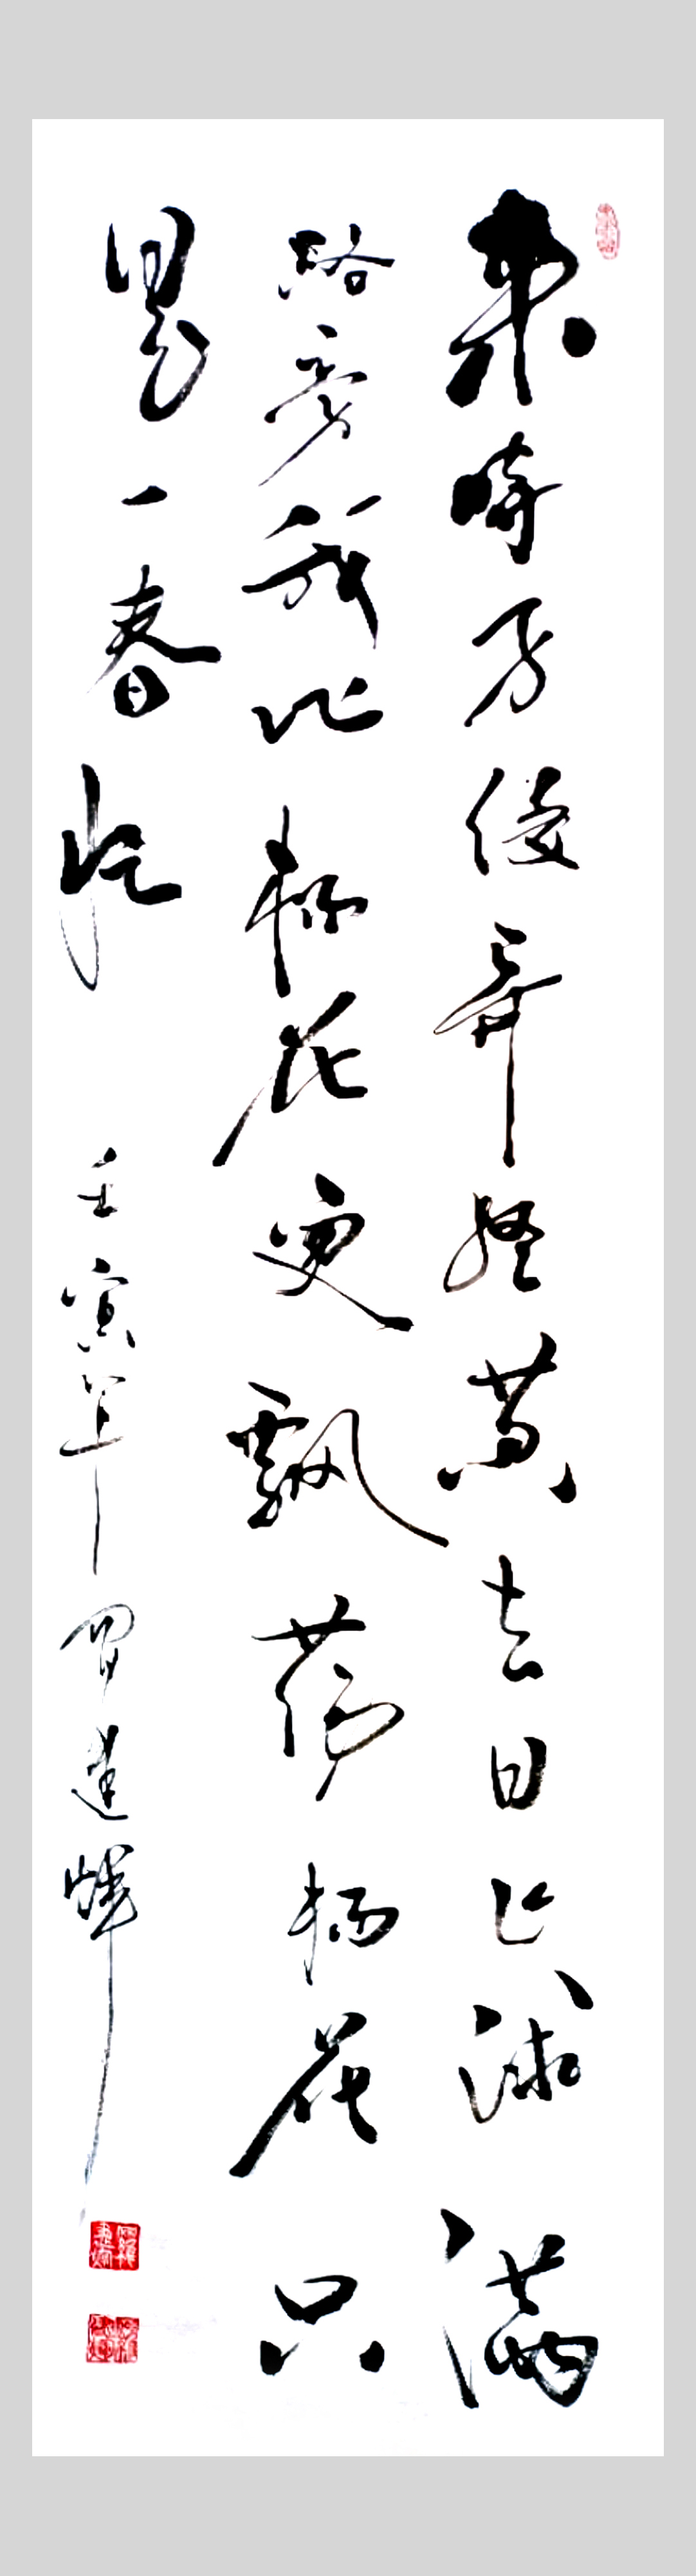 来时万缕弄轻黄去日飞球满
路旁我比杨花更飘荡杨花只
是一春忙
壬寅年罗建辉